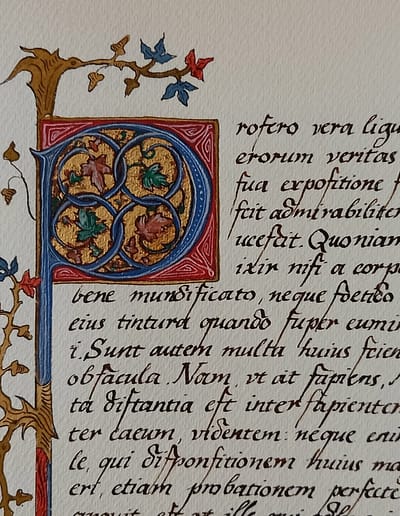 Profero vera ligu
erorum veritas
ſua expoſitione f
ſcit admirabiliter
uceſcit. Quoniam
ixir niſi a corp
bene mundificato, neque foetido
eius tintura quando ſuper eumi
i. Sunt autem multa huius ſcien
obſacula. Nam, vt ait ſapiens,
ta diſtantia eſt inter ſapienten
ter caeum, videntem: neque eni
le, qui diſponſitionem huius ma
eri, etiam probationem perfect